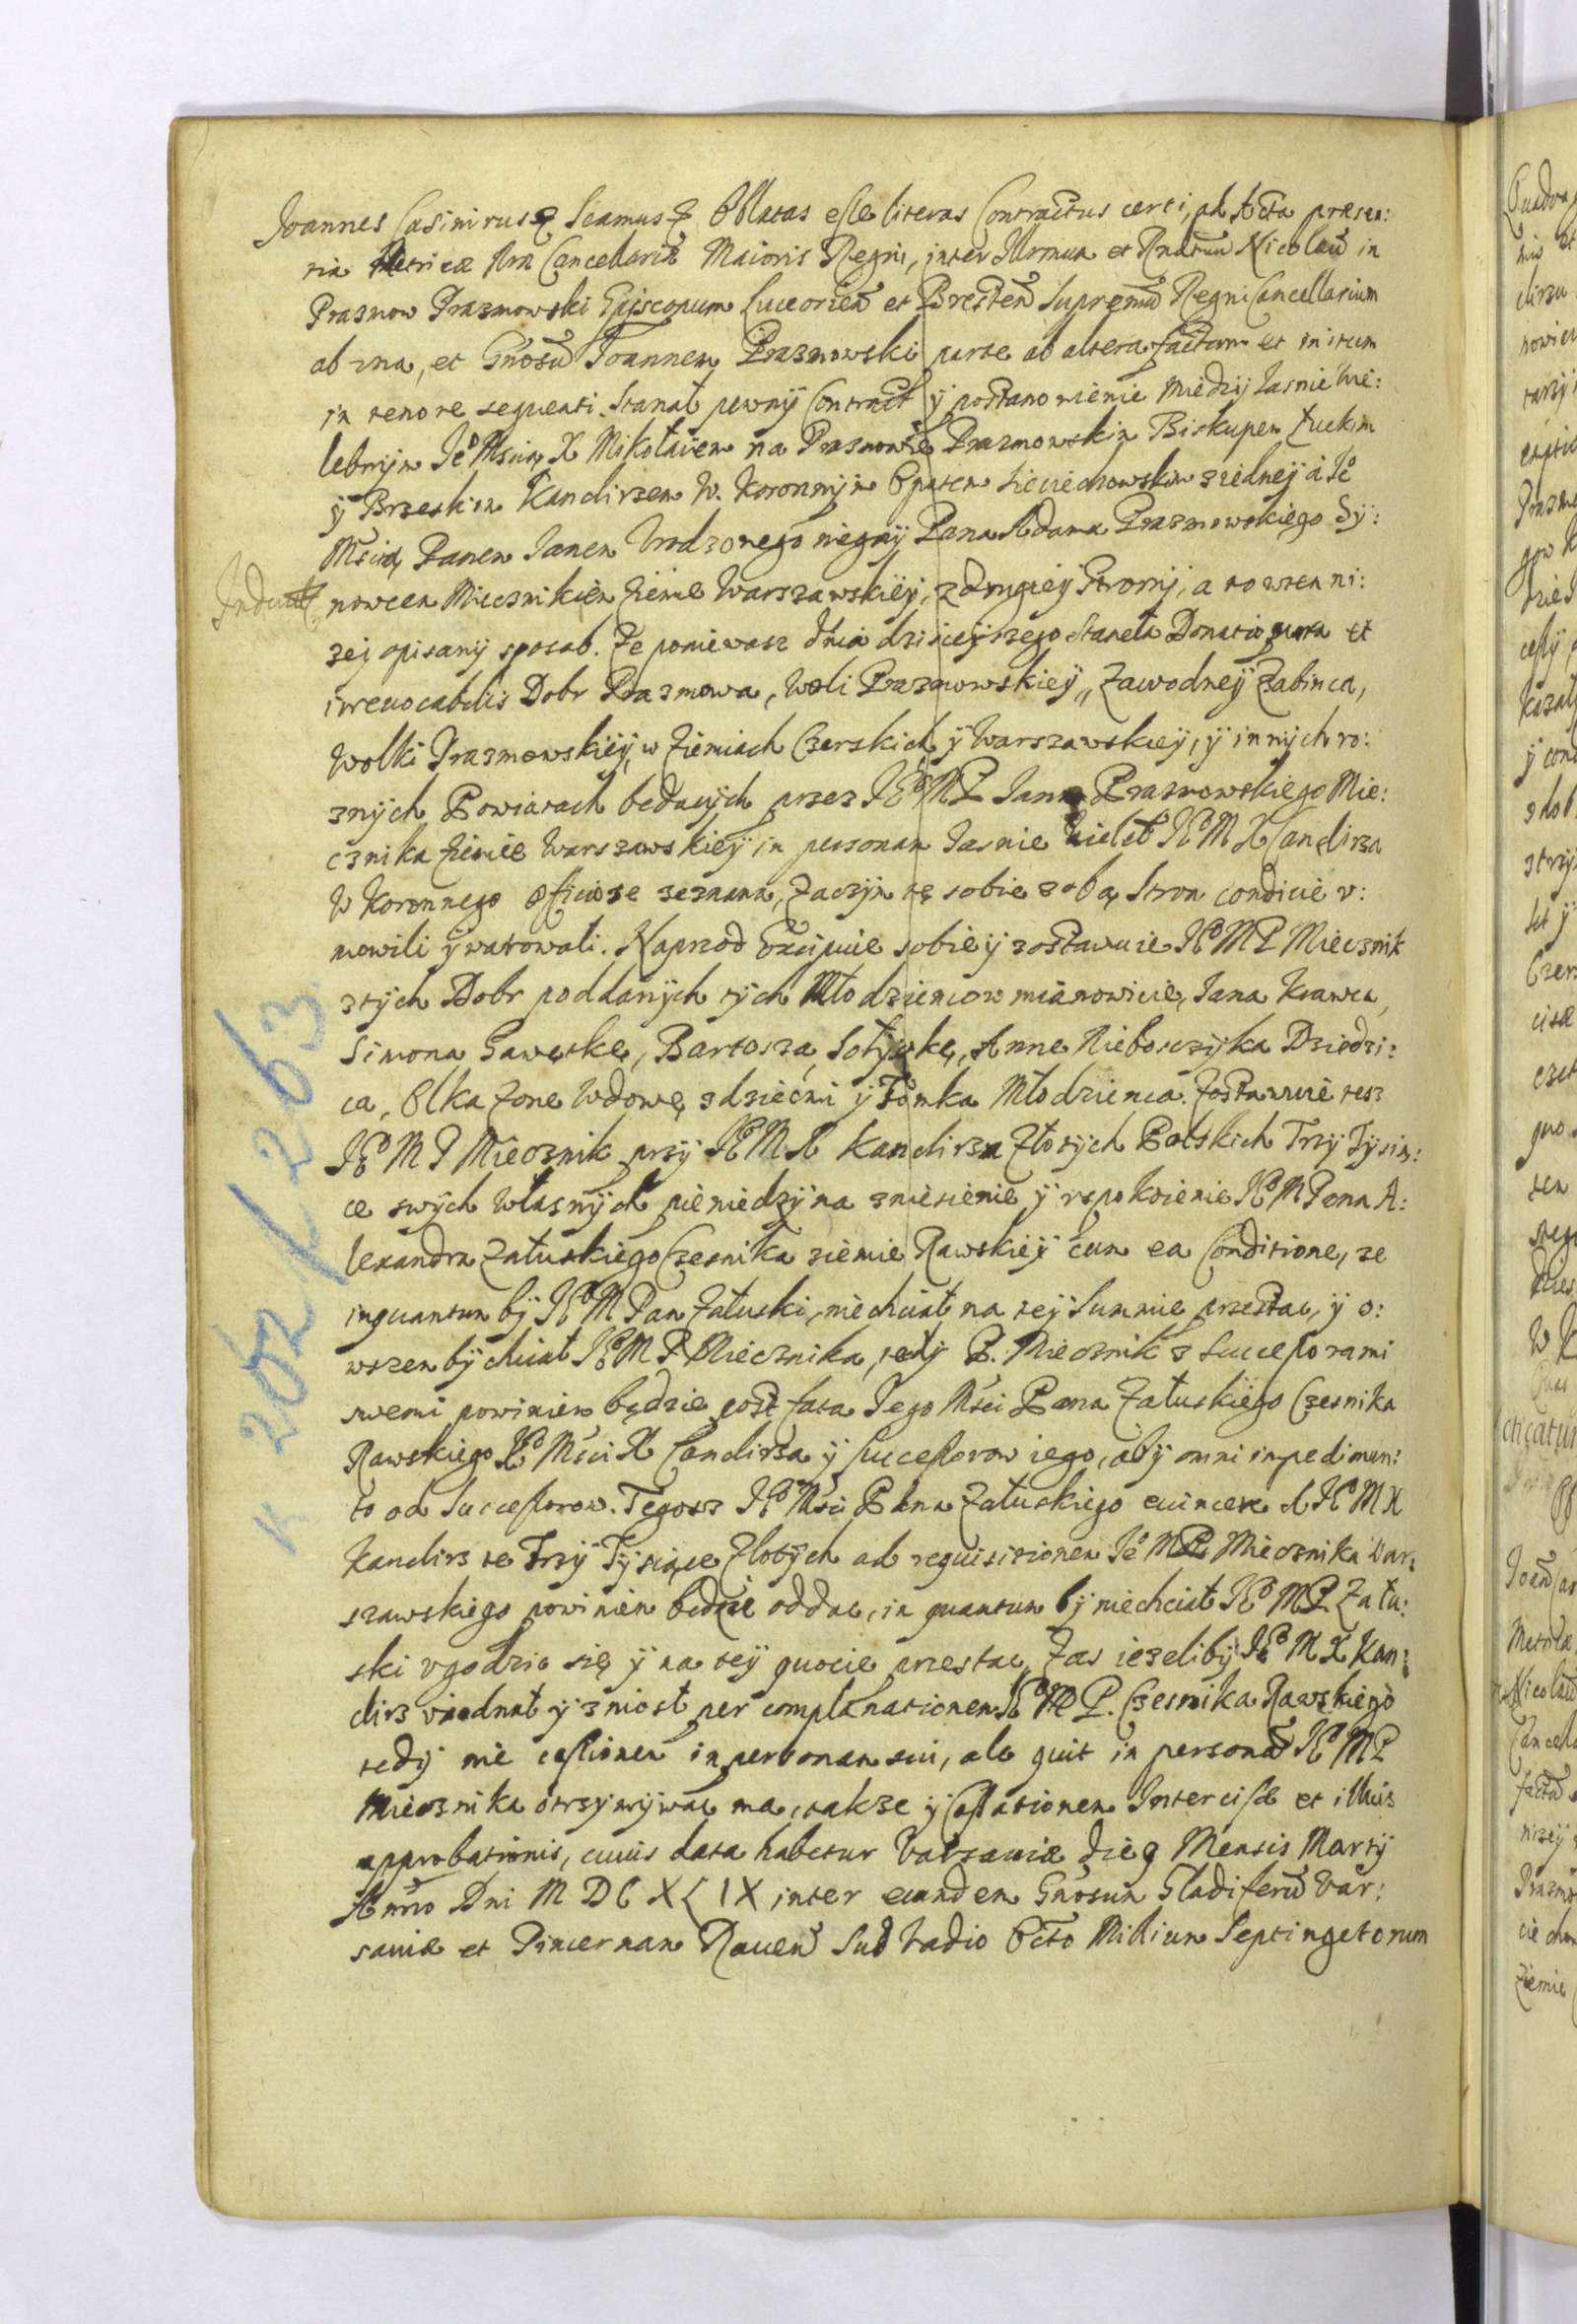 Joannes Casimirus etc. Scamus etc. Oblatas esse literas Contractus certi, ad Acta praesen:
tia Metricae Nrae Cancellariae Maioris Regni, inter Illrmum et Rndrum Nicolaũ in
Prazmow Prazmowski Episcopum Luceorieñ et Bresteñ Supremũ Regni Cancellarium
ab vna, et Gñosũ Joannem Prazmowski parte ab altera factum et initum
in tenore sequenti. Stanął pewnÿ Contract ÿ postanowienie międzÿ Jasnie Wie:
lebnÿm Jeº Mscią X Mikołaiem na Prazmowie Prazmowskim Biskupem Łuckim
ÿ Brzeskim Kanclirzem W. Koronnÿm Opatem Sieciechowskim z iedneÿ á Jeº
Mścią Panem Janem Vrodzonego niegdÿ Pana Adama Prazmowskiego Sÿ:
nowcem Miecznikiem Ziemie Warszawskieÿ, z drugieÿ stronÿ, a to wten ni:
zej opisanÿ sposob. Ze poniewasz dnia dzisieÿszego stanęła Donatio pura et
irreuocabilis Dobr Prazmowa, Woli Prazmowskieÿ, Zawodneÿ Zabinca,
Wolki Prazmowskieÿ, w Ziemiach Czerskich ÿ Warszawskieÿ, ÿ innÿch ro:
znÿch Powiatach będącÿch przez JEº M P Jana Prazmowskiego Mie:
cznika Ziemie Warszawskieÿ in personam Jasnie Wieleb JEº M X Canclirza
W Koronnego officiose zeznana, Zaczÿm te sobie z obą stron condicie v:
mowili ÿ warowali. Naprzod Excipuie sobie ÿ zostawuie JEº M P Miecznik
z tÿch Dobr poddanÿch tÿch Młodziencow mianowicie, Jana Krawca,
Simona Gawęskę, Bartosza, Anne Nieboszczÿka Dziedzi:
ca, Olka Zone Wdowę z dziećmi ÿ Tomka Młodzienca. Zostawuie tesz
JEº M P Miecznik przÿ JEº M X Kanclirzu Złotÿch Polskich Trzÿ Tÿsią:
ce swÿch własnÿch pieniedzÿ na zniesienie ÿ vspokoienie JEº M Pana A:
lexandra Załuskiego Czesnika ziemie Rawskieÿ cum ea Conditione, ze
inquantum bÿ JEº M Pan Załuski, niechciał na teÿ Summie przestac, ÿ o:
wszem bÿ chciał JEº M P Miecznika, tedÿ P. Miecznik z Successorami
swemi powinien będzie post fata Jego Mści Pana Załuskiego Czesnika
Rawskiego JEº Mści X Canclirza ÿ successorow iego, abÿ omni impedimen:
to od Successorow. Tegosz JEº Mści Pana Załuskiego euincere A JEº M X
Kanclirz te Trzÿ Tÿsiące Złotÿch ad requisitionem Jeº M P Miecznika War:
szawskiego powinien będzie oddac, in quantum bÿ niechciał JEº M P Zału:
ski vgodzic się ÿ na teÿ quocie przestac, Zas iezelibÿ JEº M X Kan:
clirz viednał ÿ zniosł per complanationem JEº M P. Czesnika Rawskiego
tedÿ nie cessionem in personam sui, ale quit in personã JEº M P
Miecznika otrzÿmÿwac ma, takze ÿ Cassationem Intercisae et illius
approbationis, cuius data habetur Varsauiae die 9 Mensis Martÿ
Anno Dni M D C X L I X inter eundem Gñosum Gladiferũ Var:
sauiae et Pincernam Raueñ Sub Vadio Octo Milium Septingetorum
K 202/263